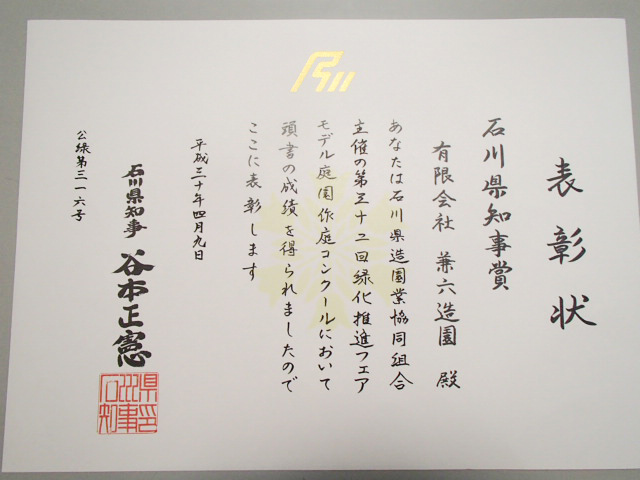 表彰状
石川県知事賞
有限会社 兼六造園 殿
あなたは石川県造園業協同組合
主催の第三十二回緑化推進フェア
モデル庭園作庭コンクールにおいて
頭書の成績を得られましたので
ここに表彰します
平成三十年四月九日
石川県知事 谷本正憲
石川県知事印
公緑第三一六号